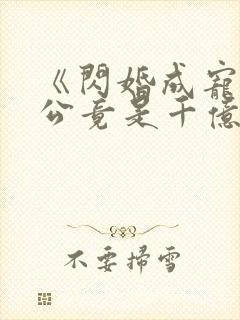 《閃婚成寵
公竟是千億
不要掃雪